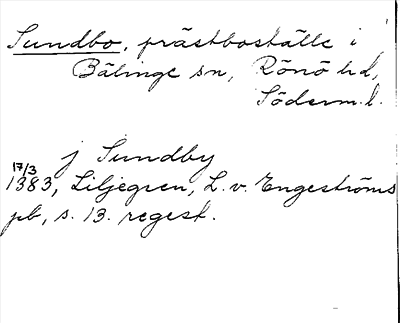 Sundbo, prästboställe i
Bälinge sn, Rönö hd,
Söderm.l.
j Sundby
17/3
1383, Liljegren, L. v. Engeströms
pb, s. 13. regest.